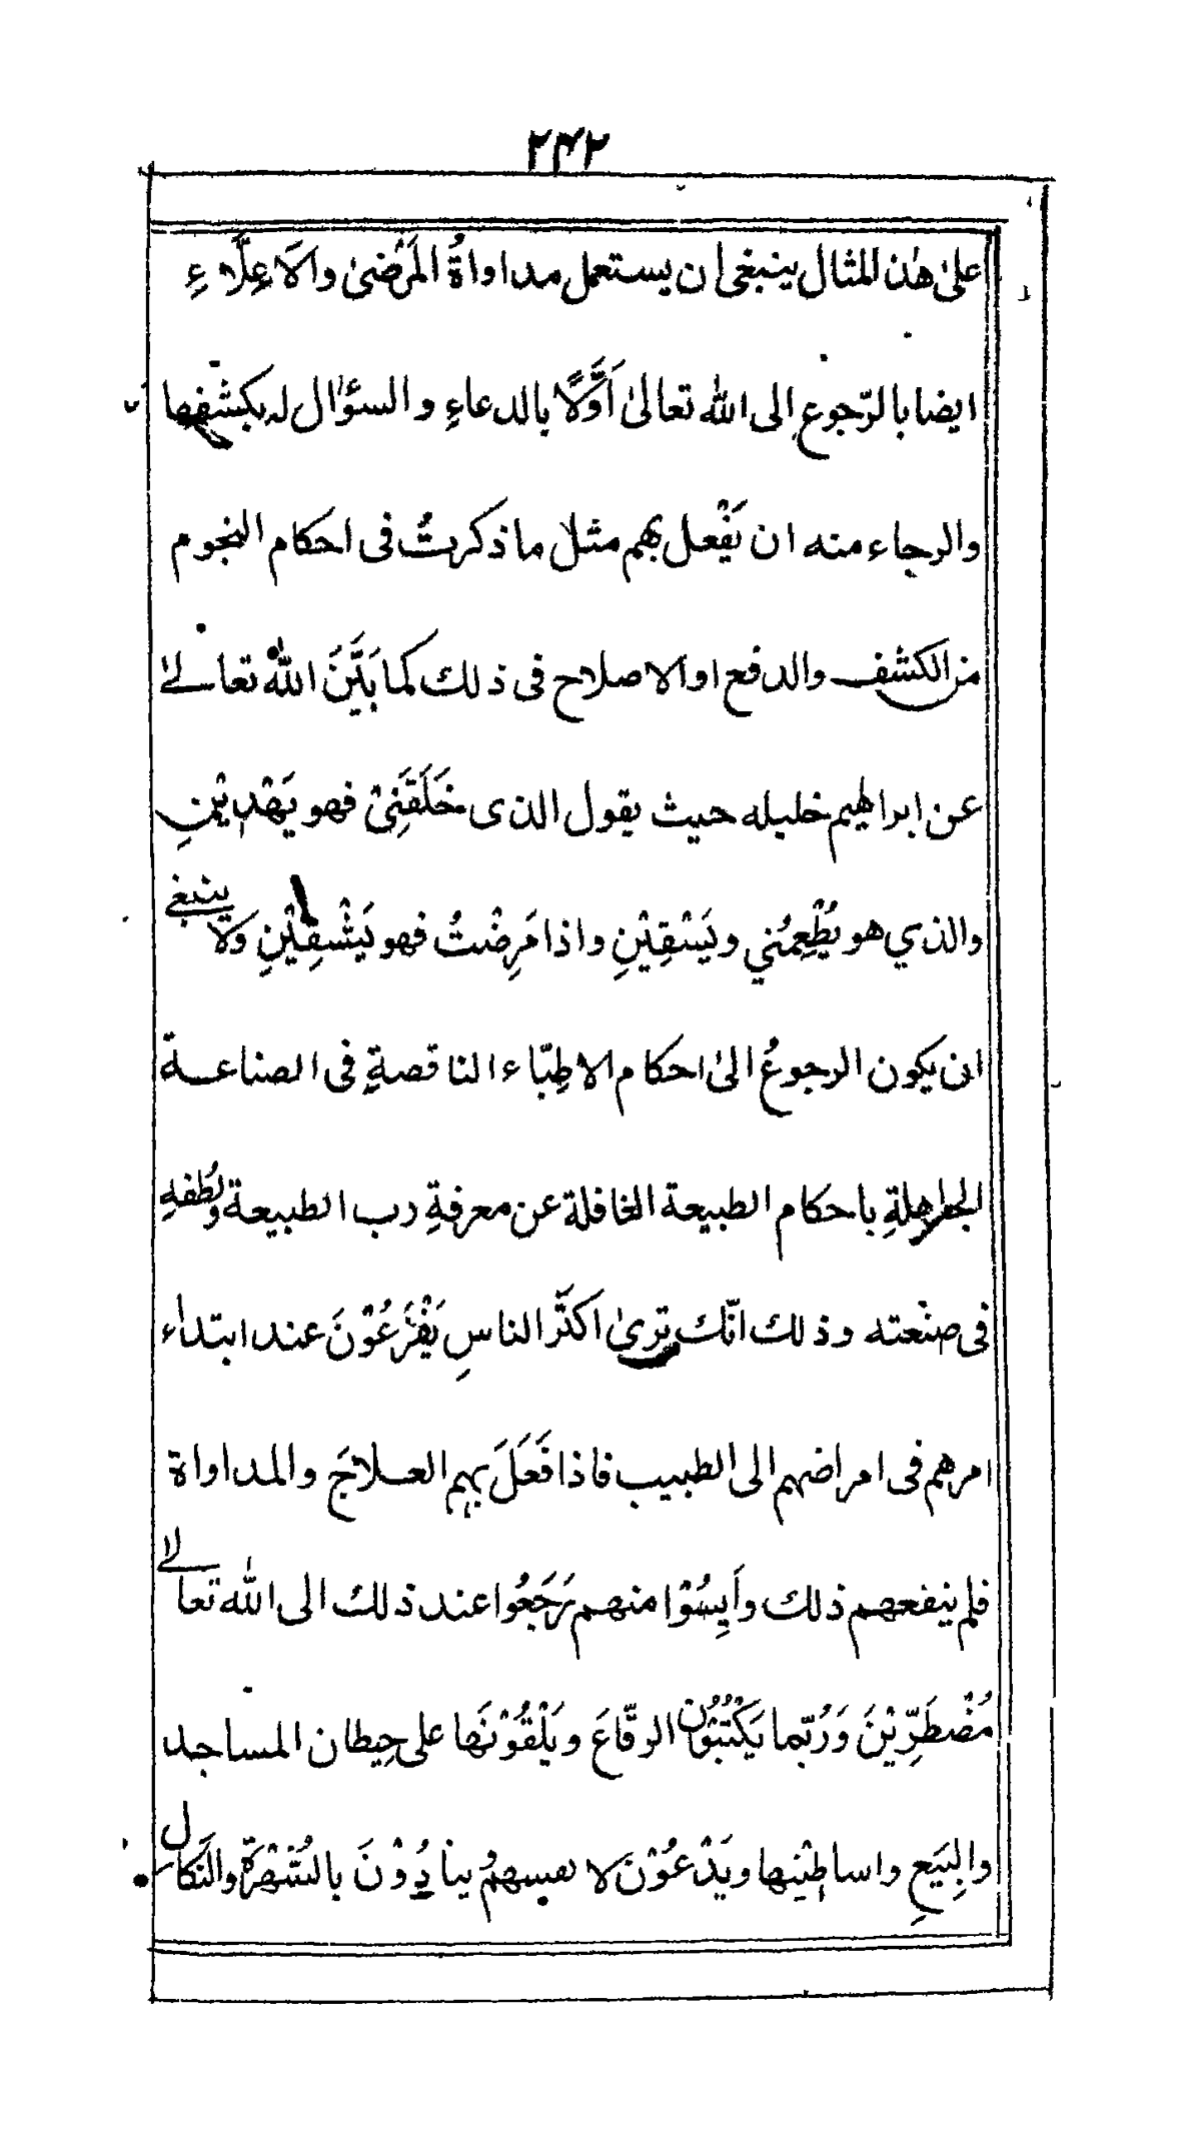 ٢٤٢
على هذا المثال ينبغى ان يستعمل مداواةُ المَرْضىٰ والاَعِلَّاءِ
ايضا بالرّجوع الى الله تعالىٰ اَوَّلًا بالدعاءِ والسؤال له بكشفها
والرجاء منه ان يَفْعل بهم مثل ما ذكرتُ فى احكام النجوم
من الكشف والدفع او الاصلاح فى ذلك كما بَيَّنَ اللهُ تعالىٰ
عن ابراهيم خليله حيث يقول الذى خَلَقَنِىْ فهو يَهْدِيْنِ
والذي هو يُطْعِمُني ويَسْقِيْنِ واذا مَرِضْتُ فهو يَشْفِيْنِ ولا ينبغى
ان يكون الرجوعُ الىٰ احكام الاطِبّاء الناقصةِ فى الصناعة
الجاهلةِ باحكام الطبيعة الغافلة عن معرفةِ رب الطبيعة ولُطْفهِ
فى صنْعته وذلك انّك ترىٰ اكثَر الناسِ يَفْزَعُوْنَ عند ابتداء
امرهم فى امراضهم الى الطبيب فاذا فَعَلَ بهم العلاجَ والمداواة
فلم ينفعهم ذلك واَيِسُوْا منهم رَجَعُوا عند ذلك الى الله تعالىٰ
مُضْطَرِّيْنَ وَرُبّما يَكْتُبُوْنَ الرقّاعَ ويَلْقُوْنَها على حِيطان المساجد
والبِيَعِ واساطِيْنها ويَدْعُوْنَ لانفسهمْ ينادُوْنَ بالشُّهْرَةِ والنَكالِ